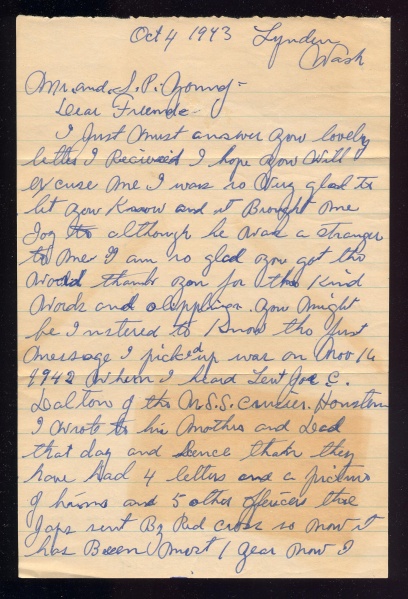 Oct 4 1943 Lynden
Wash
Mr. and S. P. Young -
Dear Friends -
I Just Must answer your lovely
letter I Recieved I hope you will
excuse me I was so very glad to
let you Know and it Brought me
Joy to although he was a stranger
to me I am so glad you got the
word thanks you for the Kind
Words and clipping. You might
be Instered to Know the first
message I picked up was on Nov 16
1942 When I heard Leut Joe C.
Dalton of the U.S.S. Cruiser. Houston
I wrote to his Mother and Dad
that day and sence then they
have had 4 letters and a picture
of him and 5 other officers the
Japs sent By Red cross so now it
has Been most 1 year now I